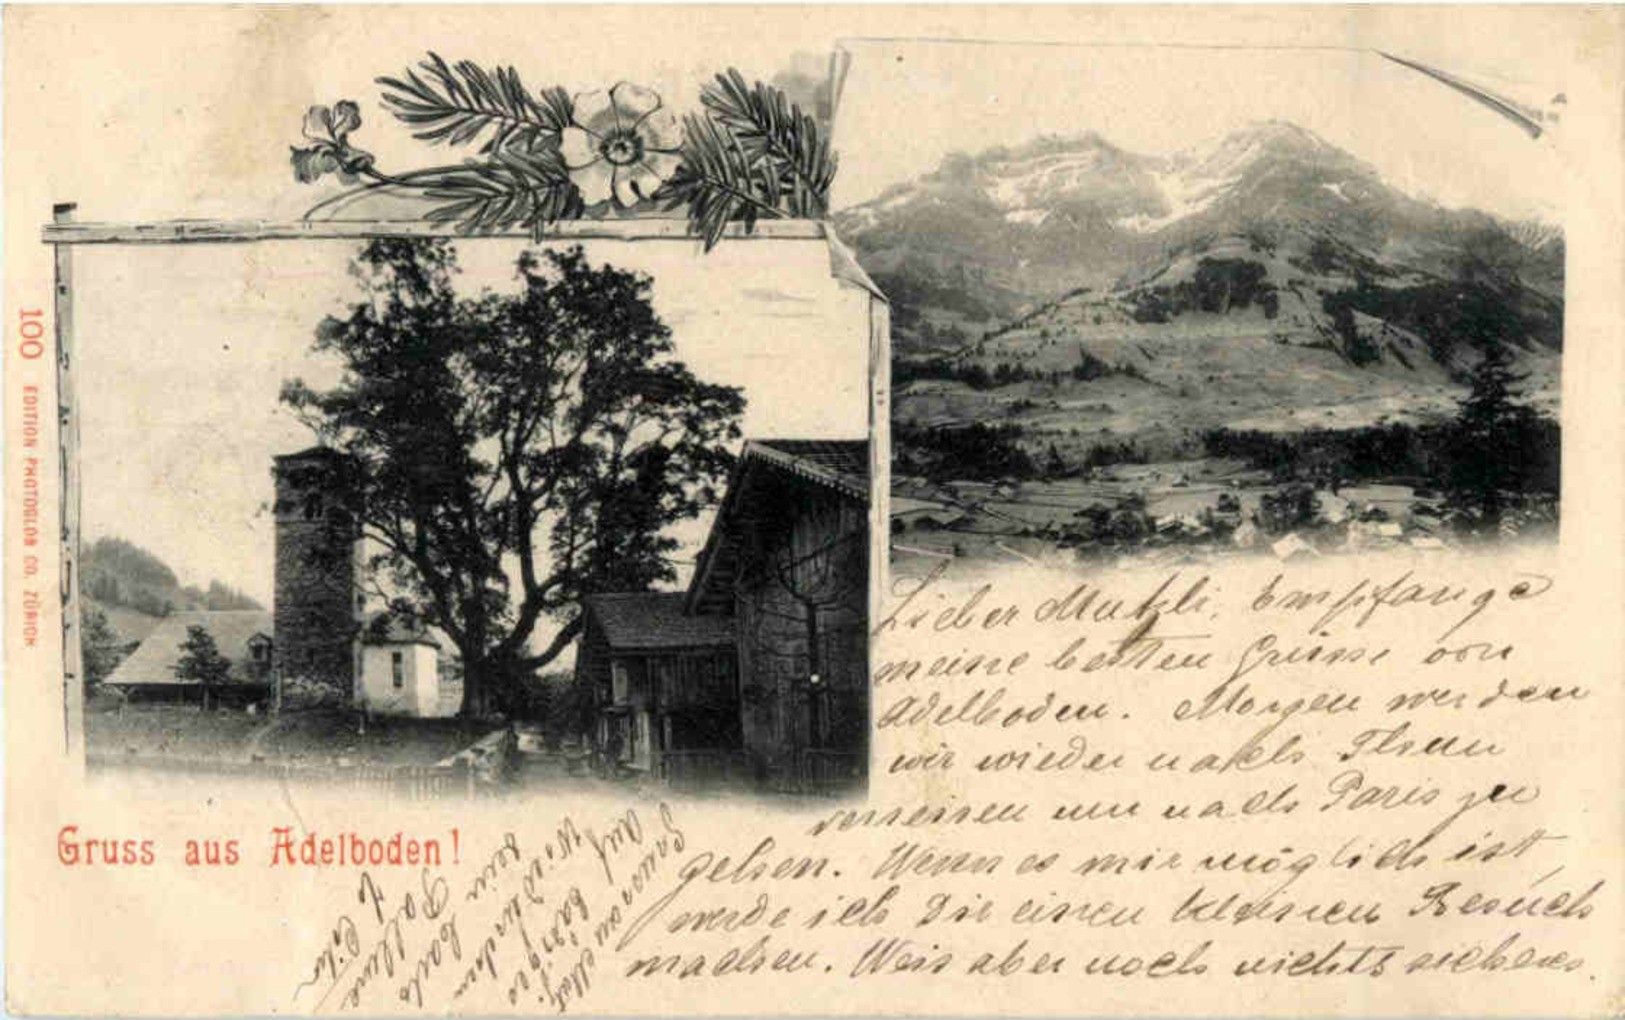 100 EDITION PHOTOGLOB CO. ZÜRICH
Gruss aus Adelboden!
Lieber Mutzli, Empfange
meine besten Grüsse von
Adelboden. Morgen werden
wir wieder nach Thun
verreisen um nach Paris zu
gehen. Wenn es mir möglich ist,
werde ich Dir einen kleinen Besuch
machen. Weis aber noch nichts sicheres.
auf baldiges
Wiedersehen
dein